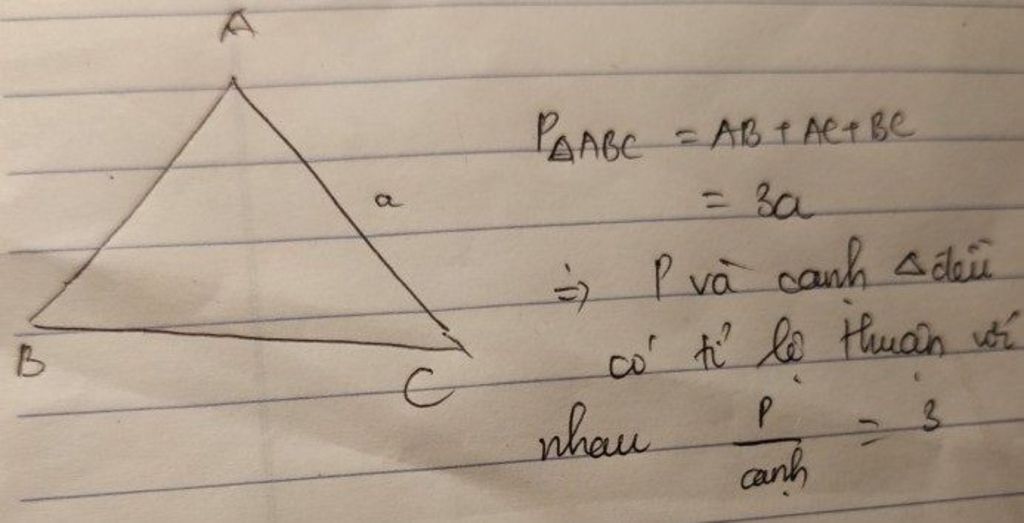 A
B
C
a
P△ABC = AB + AC + BC
= 3a
=> P và cạnh △ đều
có tỉ lệ thuận với
nhau P/cạnh = 3